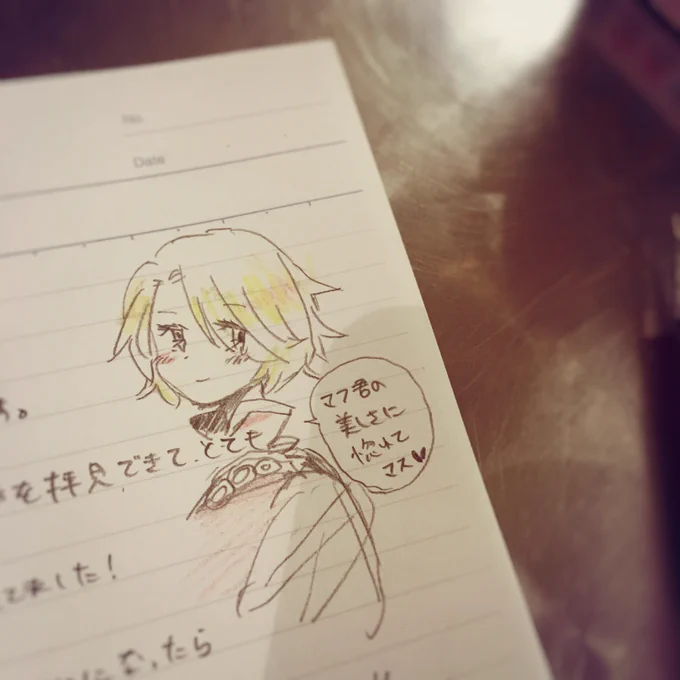 No.
Date
を拝見できて、とても
マフ君の
美しさに
惚れて
マス♥
ました!
たら